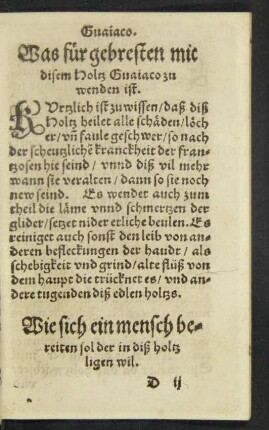 Guaiaco.
Was für gebresten mit
disem Holtz Guaiaco zu
wenden ist.
KVrtzlich ist zu wissen/daß diß
Holtz heilet alle schäden/löch
er/vñ faule geschwer/so nach
der scheutzlichẽ kranckheit der fran-
tzosen hie seind/ vnnd diß vil mehr
wann sie veralten/dann so sie noch
new seind. Es wendet auch zum
theil die läme vnnd schmertzen der
glider/setzet nider etliche beulen. Es
reiniget auch sonst den leib von an-
deren befleckungen der haudt/ als
schebigkeit vnd grind/alte flüß von
dem haupt die trücknet es/vnd an-
dere tugenden diß edlen holtzs.
Wie sich ein mensch be-
reiten sol der in diß holtz
ligen wil.
D ij